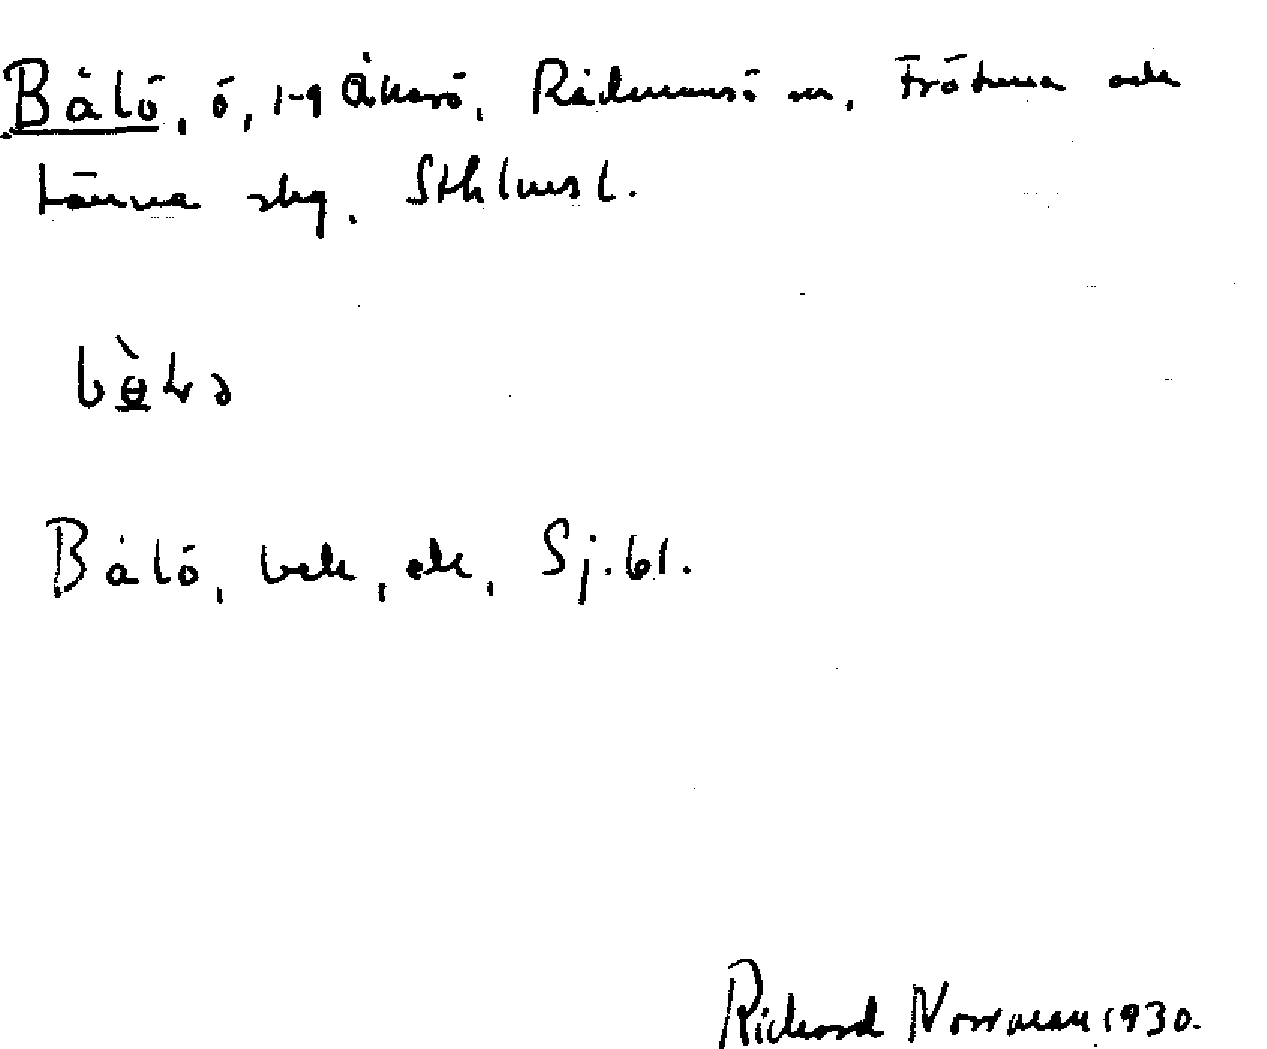 Bålö, ö, 1-9 Åkerö, Rådmansö sn, Frötuna och
Länna skg. Sthlms l.
Bålö, bek, ek, Sj.bl.
Richard Norrman 1930.